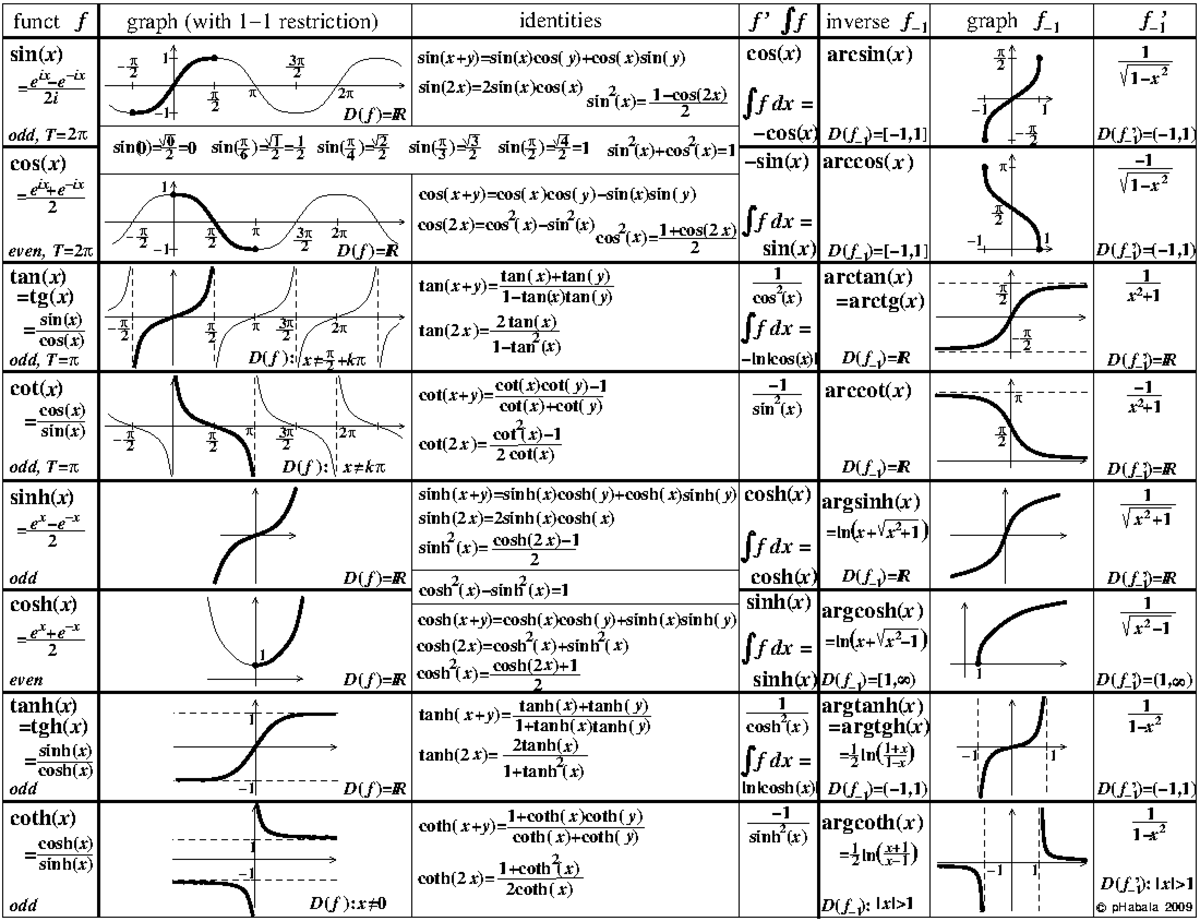 funct f graph (with 1−1 restriction) identities f' ∫f inverse f₋₁ graph f₋₁ f₋₁'
sin(x)
=(e^{ix}−e^{−ix})/2i
odd, T=2π
−π/2 1 −1 π/2 π 3π/2 2π
D(f)=ℝ
sin(x+y)=sin(x)cos(y)+cos(x)sin(y)
sin(2x)=2sin(x)cos(x)
sin²(x)=(1−cos(2x))/2
cos(x)
∫f dx =
−cos(x)
arcsin(x)
D(f₋₁)=[−1,1]
π/2 −1 1 −π/2
1/√(1−x²)
D(f₋₁')=(−1,1)
sin(0)=√0/2=0 sin(π/6)=√1/2=1/2 sin(π/4)=√2/2 sin(π/3)=√3/2 sin(π/2)=√4/2=1 sin²(x)+cos²(x)=1
cos(x)
=(e^{ix}+e^{−ix})/2
even, T=2π
1 −π/2 −1 π/2 π 3π/2 2π
D(f)=ℝ
cos(x+y)=cos(x)cos(y)−sin(x)sin(y)
cos(2x)=cos²(x)−sin²(x)
cos²(x)=(1+cos(2x))/2
−sin(x)
∫f dx =
sin(x)
arccos(x)
D(f₋₁)=[−1,1]
π π/2 −1 1
−1/√(1−x²)
D(f₋₁')=(−1,1)
tan(x)
=tg(x)
=sin(x)/cos(x)
odd, T=π
−π/2 π/2 π 3π/2 2π
D(f): x≠π/2+kπ
tan(x+y)=(tan(x)+tan(y))/(1−tan(x)tan(y))
tan(2x)=2tan(x)/(1−tan²(x))
1/cos²(x)
∫f dx =
−ln|cos(x)|
arctan(x)
=arctg(x)
D(f₋₁)=ℝ
π/2 −π/2
1/(x²+1)
D(f₋₁')=ℝ
cot(x)
=cos(x)/sin(x)
odd, T=π
−π/2 π/2 π 3π/2 2π
D(f): x≠kπ
cot(x+y)=(cot(x)cot(y)−1)/(cot(x)+cot(y))
cot(2x)=(cot²(x)−1)/(2cot(x))
−1/sin²(x)
arccot(x)
D(f₋₁)=ℝ
π π/2
−1/(x²+1)
D(f₋₁')=ℝ
sinh(x)
=(e^x−e^{−x})/2
odd
D(f)=ℝ
sinh(x+y)=sinh(x)cosh(y)+cosh(x)sinh(y)
sinh(2x)=2sinh(x)cosh(x)
sinh²(x)=(cosh(2x)−1)/2
cosh(x)
∫f dx =
cosh(x)
argsinh(x)
=ln(x+√(x²+1))
D(f₋₁)=ℝ
1/√(x²+1)
D(f₋₁')=ℝ
cosh²(x)−sinh²(x)=1
cosh(x)
=(e^x+e^{−x})/2
even
1
D(f)=ℝ
cosh(x+y)=cosh(x)cosh(y)+sinh(x)sinh(y)
cosh(2x)=cosh²(x)+sinh²(x)
cosh²(x)=(cosh(2x)+1)/2
sinh(x)
∫f dx =
sinh(x)
argcosh(x)
=ln(x+√(x²−1))
D(f₋₁)=[1,∞)
1
1/√(x²−1)
D(f₋₁')=(1,∞)
tanh(x)
=tgh(x)
=sinh(x)/cosh(x)
odd
1 −1
D(f)=ℝ
tanh(x+y)=(tanh(x)+tanh(y))/(1+tanh(x)tanh(y))
tanh(2x)=2tanh(x)/(1+tanh²(x))
1/cosh²(x)
∫f dx =
ln|cosh(x)|
argtanh(x)
=argtgh(x)
=½ln((1+x)/(1−x))
D(f₋₁)=(−1,1)
−1 1
1/(1−x²)
D(f₋₁')=(−1,1)
coth(x)
=cosh(x)/sinh(x)
odd
1 −1
D(f): x≠0
coth(x+y)=(1+coth(x)coth(y))/(coth(x)+coth(y))
coth(2x)=(1+coth²(x))/(2coth(x))
−1/sinh²(x)
argcoth(x)
=½ln((x+1)/(x−1))
D(f₋₁): |x|>1
−1 1
1/(1−x²)
D(f₋₁'): |x|>1
© pHabala 2009